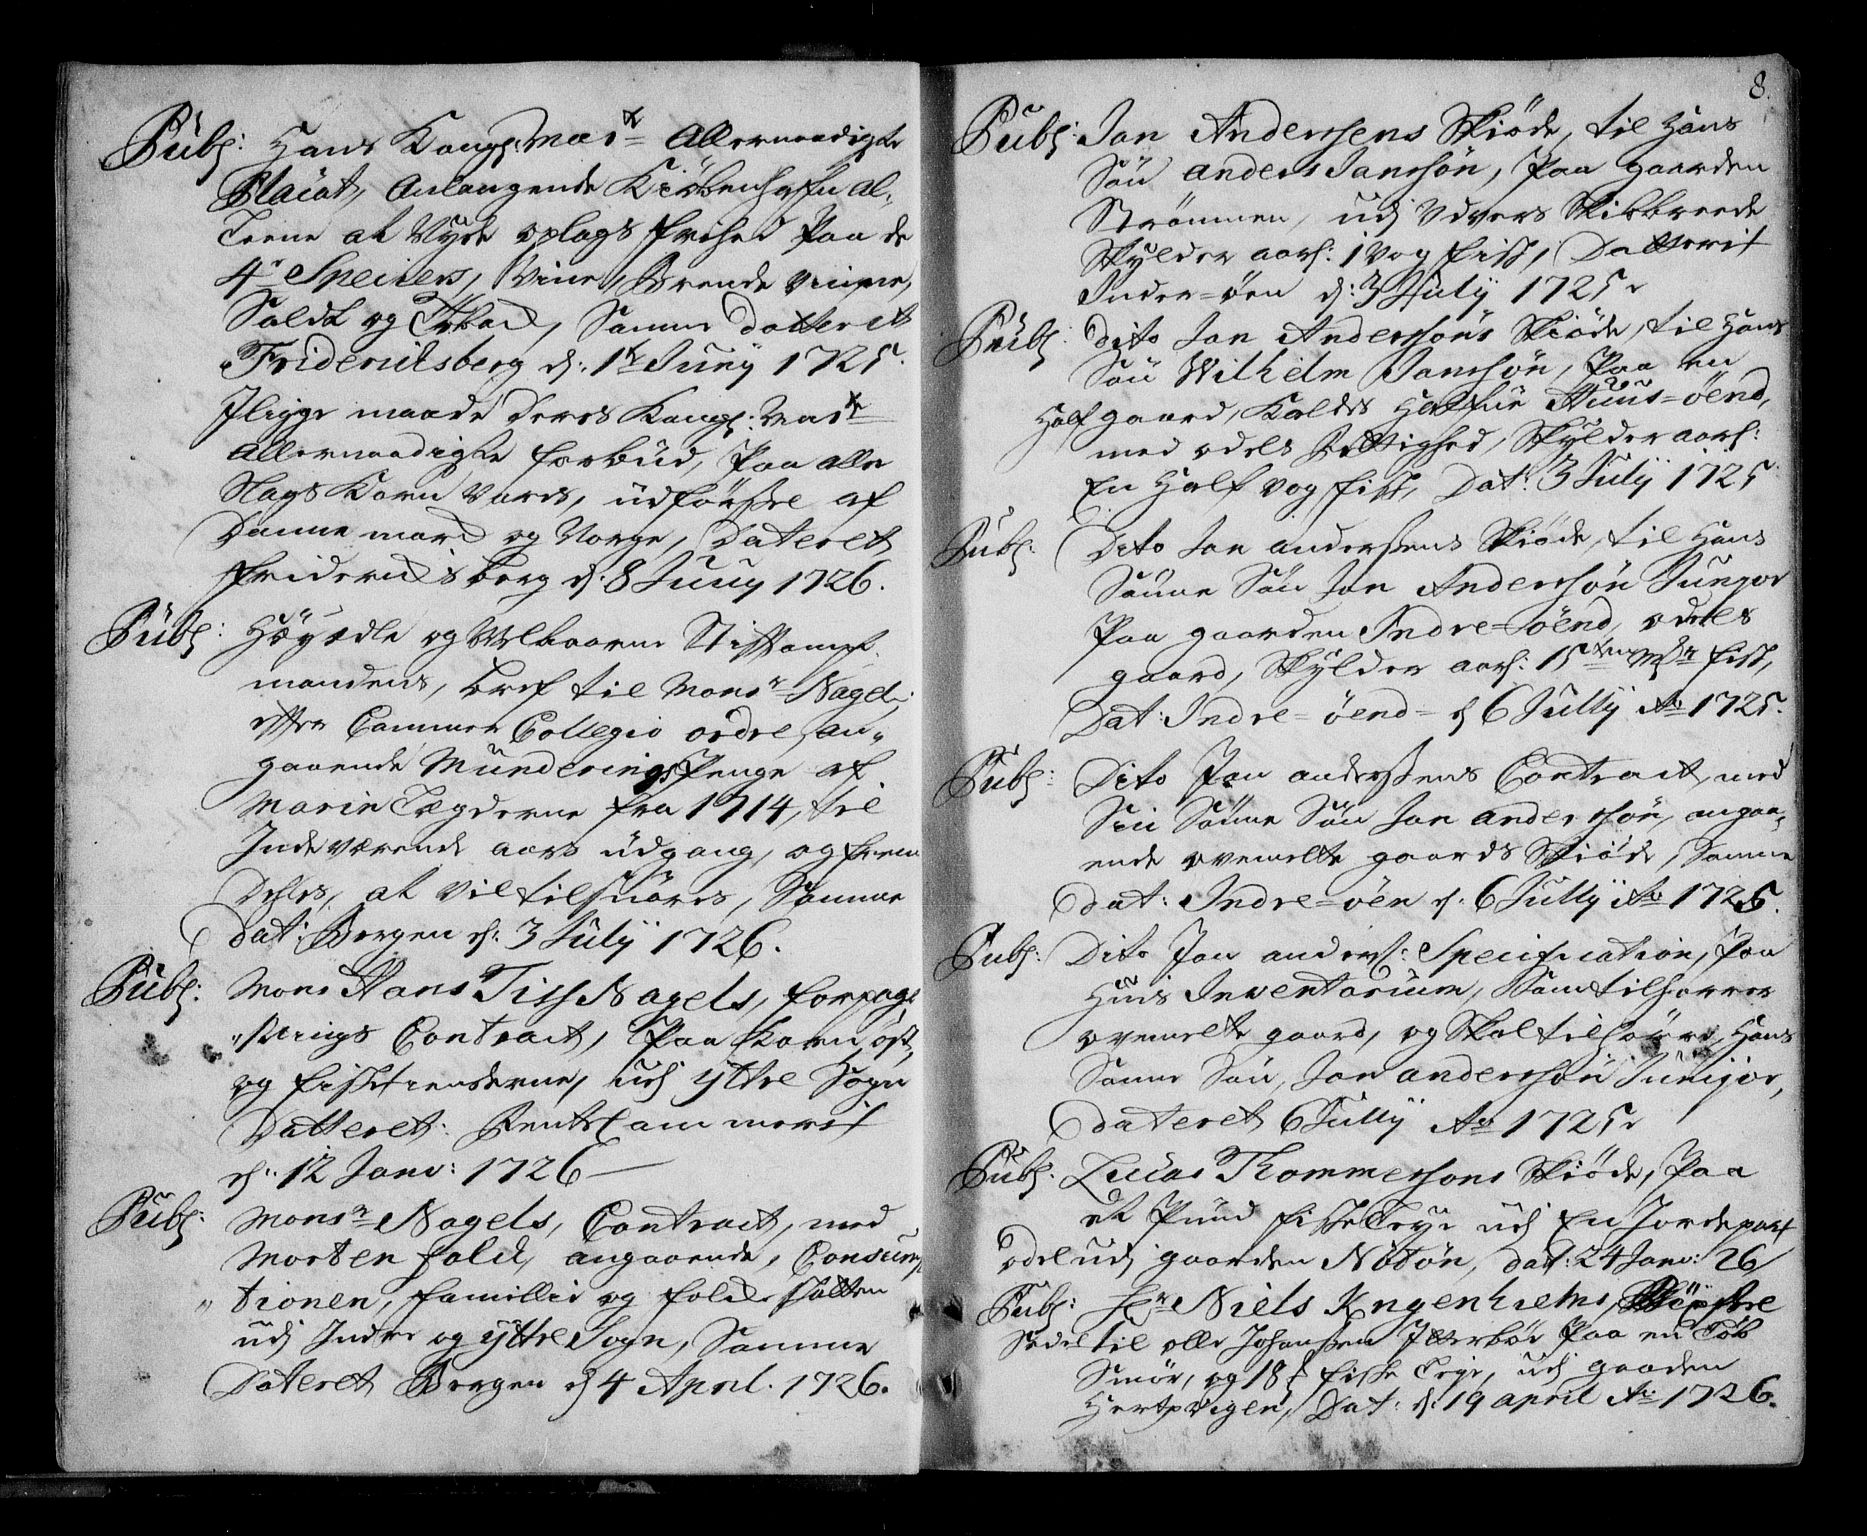 Publ: Hans Kongl: Maÿts Allernaadigste
Placat, Anlangende Kiøbenhafn al-
leene at Nyde oplags frihed paa de
4re Speicers, Viin, Brende Viine,
Saldt og Tobac, Samme datteret
Fridericksberg d: 1te Junij 1725.
Iligge maade deres Kongl: Mats
Allernaadigste forbud, paa alle
Slags Korn Vare, udførsle af
Danne marc og Norge, Dateret
Fridericksberg d: 8 Junij 1726.
Publ: Høyædle og Welbaarne Stiftamt-
mandens, bref til Monsr Nagel,
efter Cammer Collegio ordre, an-
gaaende Munderings Penge af
Marin Lægderne fra 1714, til
Indeværende aars udgang, og frem
deles, at vil tilsvares, Samme
Dat: Bergen d: 3 Julij 1726.
Publ: Mons Hans Tiss Nagels, forpagt-
nings Contract, Paa Korn, ost,
og fisketienderne, udj ÿttre Sogn
Datteret: Rentecammerit
d: 12 Janv: 1726
Publ: Monsr Nagels, Contract, med
Morten Falck, angaaende, Consump-
tionen, Familie og folcke skatten
udj Indre og ÿttre Sogn, Samme
Dateret Bergen d 4 April. 1726.
8.
Publ: Jan Anderssens Skiøde, til Hans
Søn anders Jansøn, Paa gaarden
Strømmen, udj Udvers Skibbreede
Skylder aarl: 1 Vog fisk, Datterit
Inder=øen d: 3 Julij 1725
Publ: Dito Jan Anderssøns Skiøde, til Hans
Søn Wilhelm Jansøn, Paa en
Half gaard, Kaldes Huus=øend,
med odels Rettighed, Skylder aarl:
En Half Vog fisk, Dat: 3 Julij 1725
Publ: Dito Jan anderssens Skiøde, til Hans
Sønne Søn Jan Anderssøn Jungor
Paa gaarden Indre=øend, odels
gaard, Skylder aarl: 15 fisk,
Dat: Indre=øend= d 6 Jullij Ao 1725.
Publ: Dito Jan anderssens Contract, med
Sin Sønne Søn Jan anderssøn, angaa-
ende ovemelte gaards Skiøde, Samme
Dat: Indre=øen d: 6 Jullij Ao 1725.
Publ: Dito Jan anderss: Specification, Paa
Huis Inventarium, Som tilhører
ovemelte gaard, og Skal tilhøre, Hans
Sønne Søn, Jan anderssøn Junijor,
Dateret 6 Jullij Ao 1725
Publ: Lucas Thommessøns Skiøde, Paa
et Pund fiskeleye udj En Jordepart
odel udj gaarden Nôtøn, dat: 24 Janv: 26
Publ: Hr Niels Kngenhielms, Bÿxle
Sedel til olle Johanssen Ytterbøe Paa en Løb
Smør, og 18 fiske Leye, udj gaarden
Hertsvigen, Dat: d: 19 april Ao 1726.